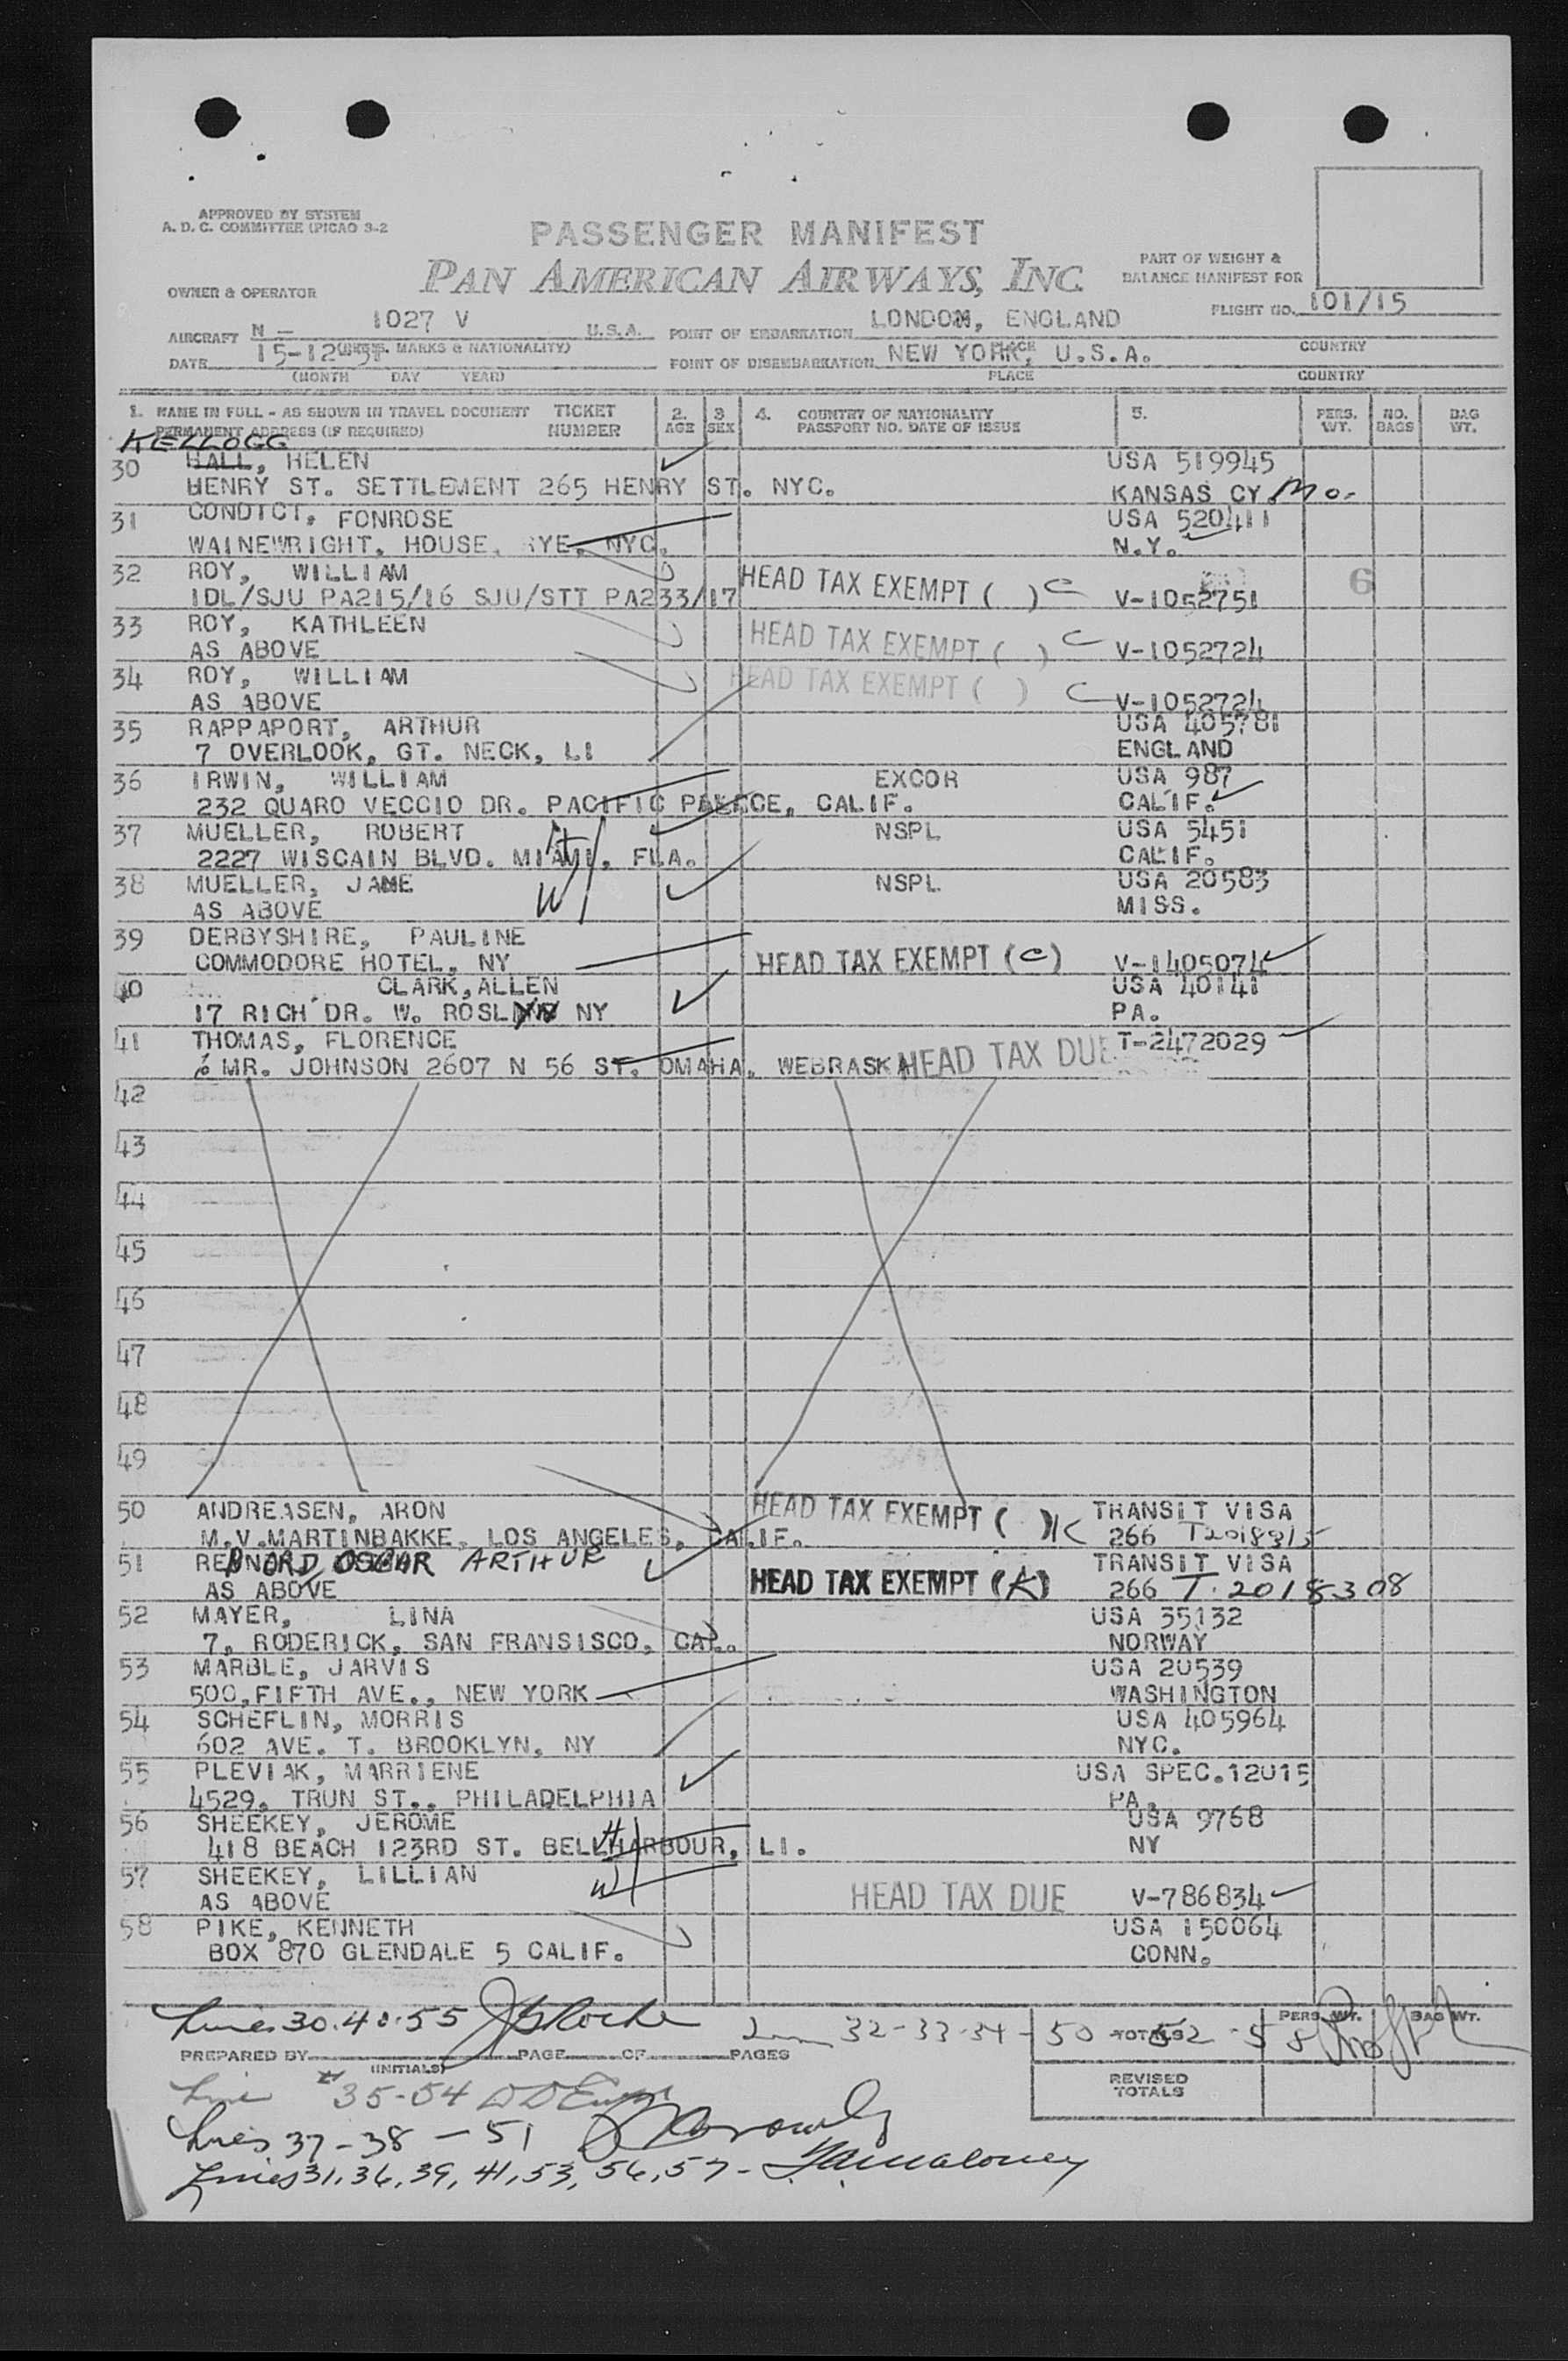 APPROVED BY SYSTEM
A. D. C. COMMITTEE (PICAO 3-2
PASSENGER MANIFEST
PAN AMERICAN AIRWAYS, INC.
PART OF WEIGHT &
BALANCE MANIFEST FOR
OWNER & OPERATOR
FLIGHT NO. 101/15
AIRCRAFT N - 1027 V U.S.A. POINT OF EMBARKATION LONDON, ENGLAND
PLACE COUNTRY
DATE 15-12-51 MARKS & NATIONALITY) POINT OF DISEMBARKATION NEW YORK, U.S.A.
(MONTH DAY YEAR) PLACE COUNTRY
1. NAME IN FULL - AS SHOWN IN TRAVEL DOCUMENT TICKET 2. 3 4. COUNTRY OF NATIONALITY 5. PERS. NO. BAG
PERMANENT ADDRESS (IF REQUIRED) NUMBER AGE SEX PASSPORT NO. DATE OF ISSUE WT. BAGS WT.
KELLOGG
30 HALL, HELEN USA 519945
HENRY ST. SETTLEMENT 265 HENRY ST. NYC. KANSAS CY. Mo.
31 CONDICT, FONROSE USA 520411
WAINEWRIGHT, HOUSE, RYE, NYC. N.Y.
32 ROY, WILLIAM HEAD TAX EXEMPT ( ) C 6
IDL/SJU PA215/16 SJU/STT PA233/17 V-1052751
33 ROY, KATHLEEN HEAD TAX EXEMPT ( ) C
AS ABOVE V-1052724
34 ROY, WILLIAM HEAD TAX EXEMPT ( ) C
AS ABOVE V-1052724
35 RAPPAPORT, ARTHUR USA 405781
7 OVERLOOK, GT. NECK, LI ENGLAND
36 IRWIN, WILLIAM EXCOR USA 987
232 QUARO VECCIO DR. PACIFIC PALECE, CALIF. CALIF.
37 MUELLER, ROBERT H/ NSPL USA 5451
2227 WISCAIN BLVD. MIAMI, FLA. CALIF.
38 MUELLER, JANE W/ NSPL USA 20583
AS ABOVE MISS.
39 DERBYSHIRE, PAULINE
COMMODORE HOTEL, NY HEAD TAX EXEMPT (C) V-1405074
40 CLARK, ALLEN USA 40141
17 RICH DR. W. ROSLYN NY PA.
41 THOMAS, FLORENCE T-2472029
% MR. JOHNSON 2607 N 56 ST. OMAHA, WEBRASKA HEAD TAX DUE
42
43
44
45
46
47
48
49
50 ANDREASEN, ARON HEAD TAX EXEMPT ( )K TRANSIT VISA
M.V.MARTINBAKKE, LOS ANGELES, CALIF. 266 T2018315
51 OSCAR ARTHUR TRANSIT VISA
AS ABOVE HEAD TAX EXEMPT (K) 266 T. 2018308
52 MAYER, LINA USA 35132
7, RODERICK, SAN FRANSISCO, CAL. NORWAY
53 MARBLE, JARVIS USA 20539
500, FIFTH AVE., NEW YORK WASHINGTON
54 SCHEFLIN, MORRIS USA 405964
602 AVE. T. BROOKLYN, NY NYC.
55 PLEVIAK, MARRIENE USA SPEC.12015
4529, TRUN ST., PHILADELPHIA PA.
56 SHEEKEY, JEROME H/ USA 9768
418 BEACH 123RD ST. BELLHARBOUR, LI. NY
57 SHEEKEY, LILLIAN W/
AS ABOVE HEAD TAX DUE V-786834
58 PIKE, KENNETH USA 150064
BOX 870 GLENDALE 5 CALIF. CONN.
Lines 30.40.55 32-33-34-50-52-58
PREPARED BY (INITIALS) PAGE OF PAGES TOTALS PERS. WT. BAG WT.
REVISED TOTALS
Line # 35-54
Lines 37-38-51
Lines 31, 36, 39, 41, 53, 56, 57 -